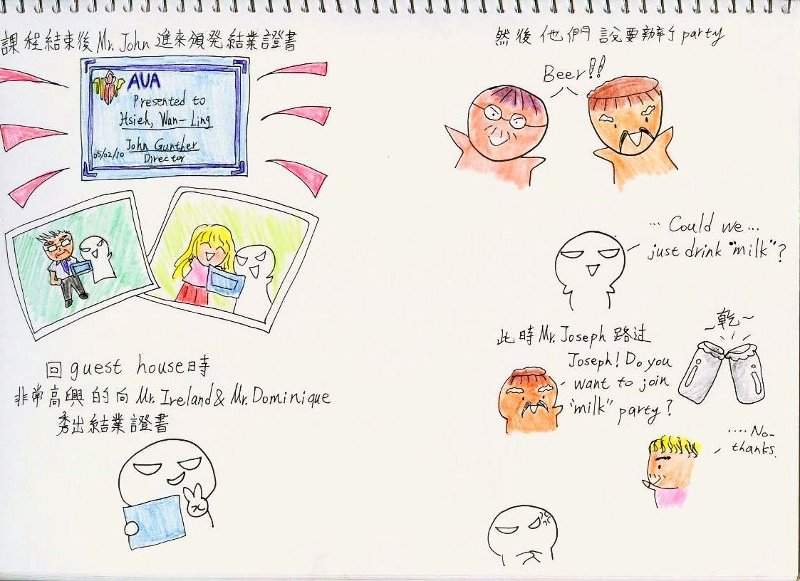 課程結束後Mr. John 進來頒發結業證書
AUA
Presented to
Hsieh, Wan-Ling
John Gunther
05/02/10 Director
回guest house時
非常高興的向Mr. Ireland & Mr. Dominique
秀出結業證書
然後他們說要辦party
Beer!!
... Could we...
just drink "milk"?
此時Mr. Joseph 路過
~乾~
Joseph! Do you
want to join
"milk" party?
....No-
thanks.